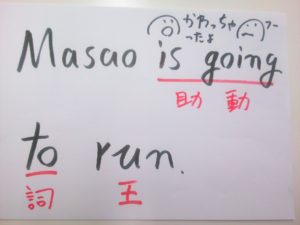 かわっちゃ
ったよ
Masao is going
助 動
to run.
詞 王